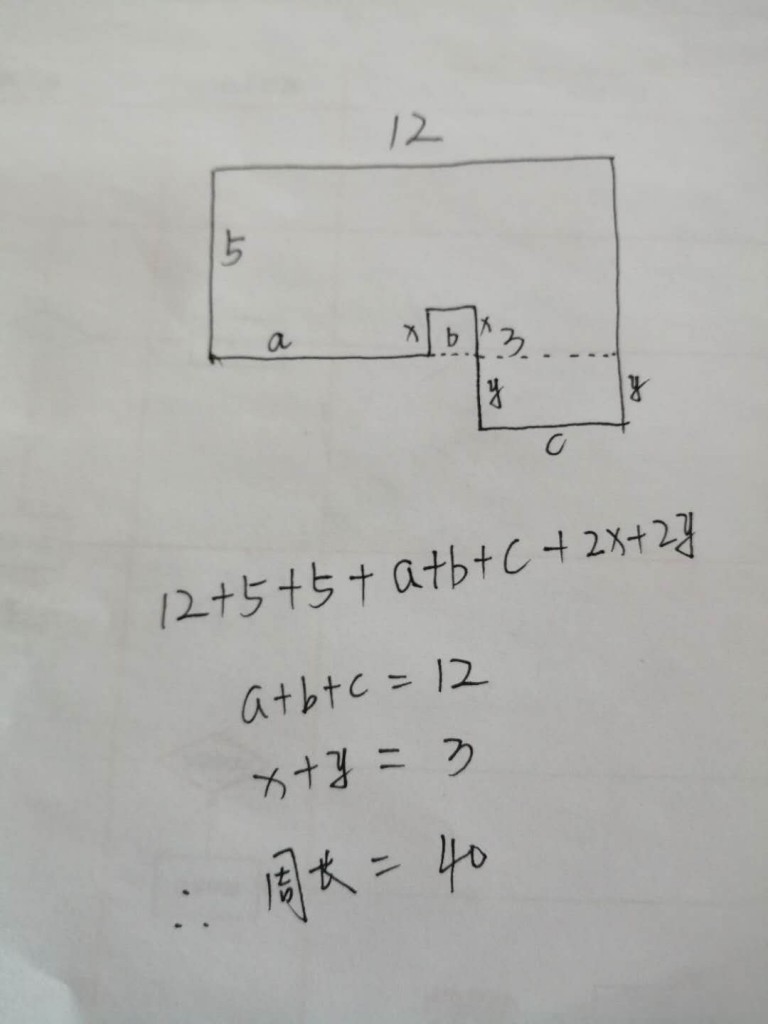 12
5
x
x
3
a
b
y
y
c
12+5+5+a+b+c+2x+2y
a+b+c=12
x+y=3
∴ 周长=40